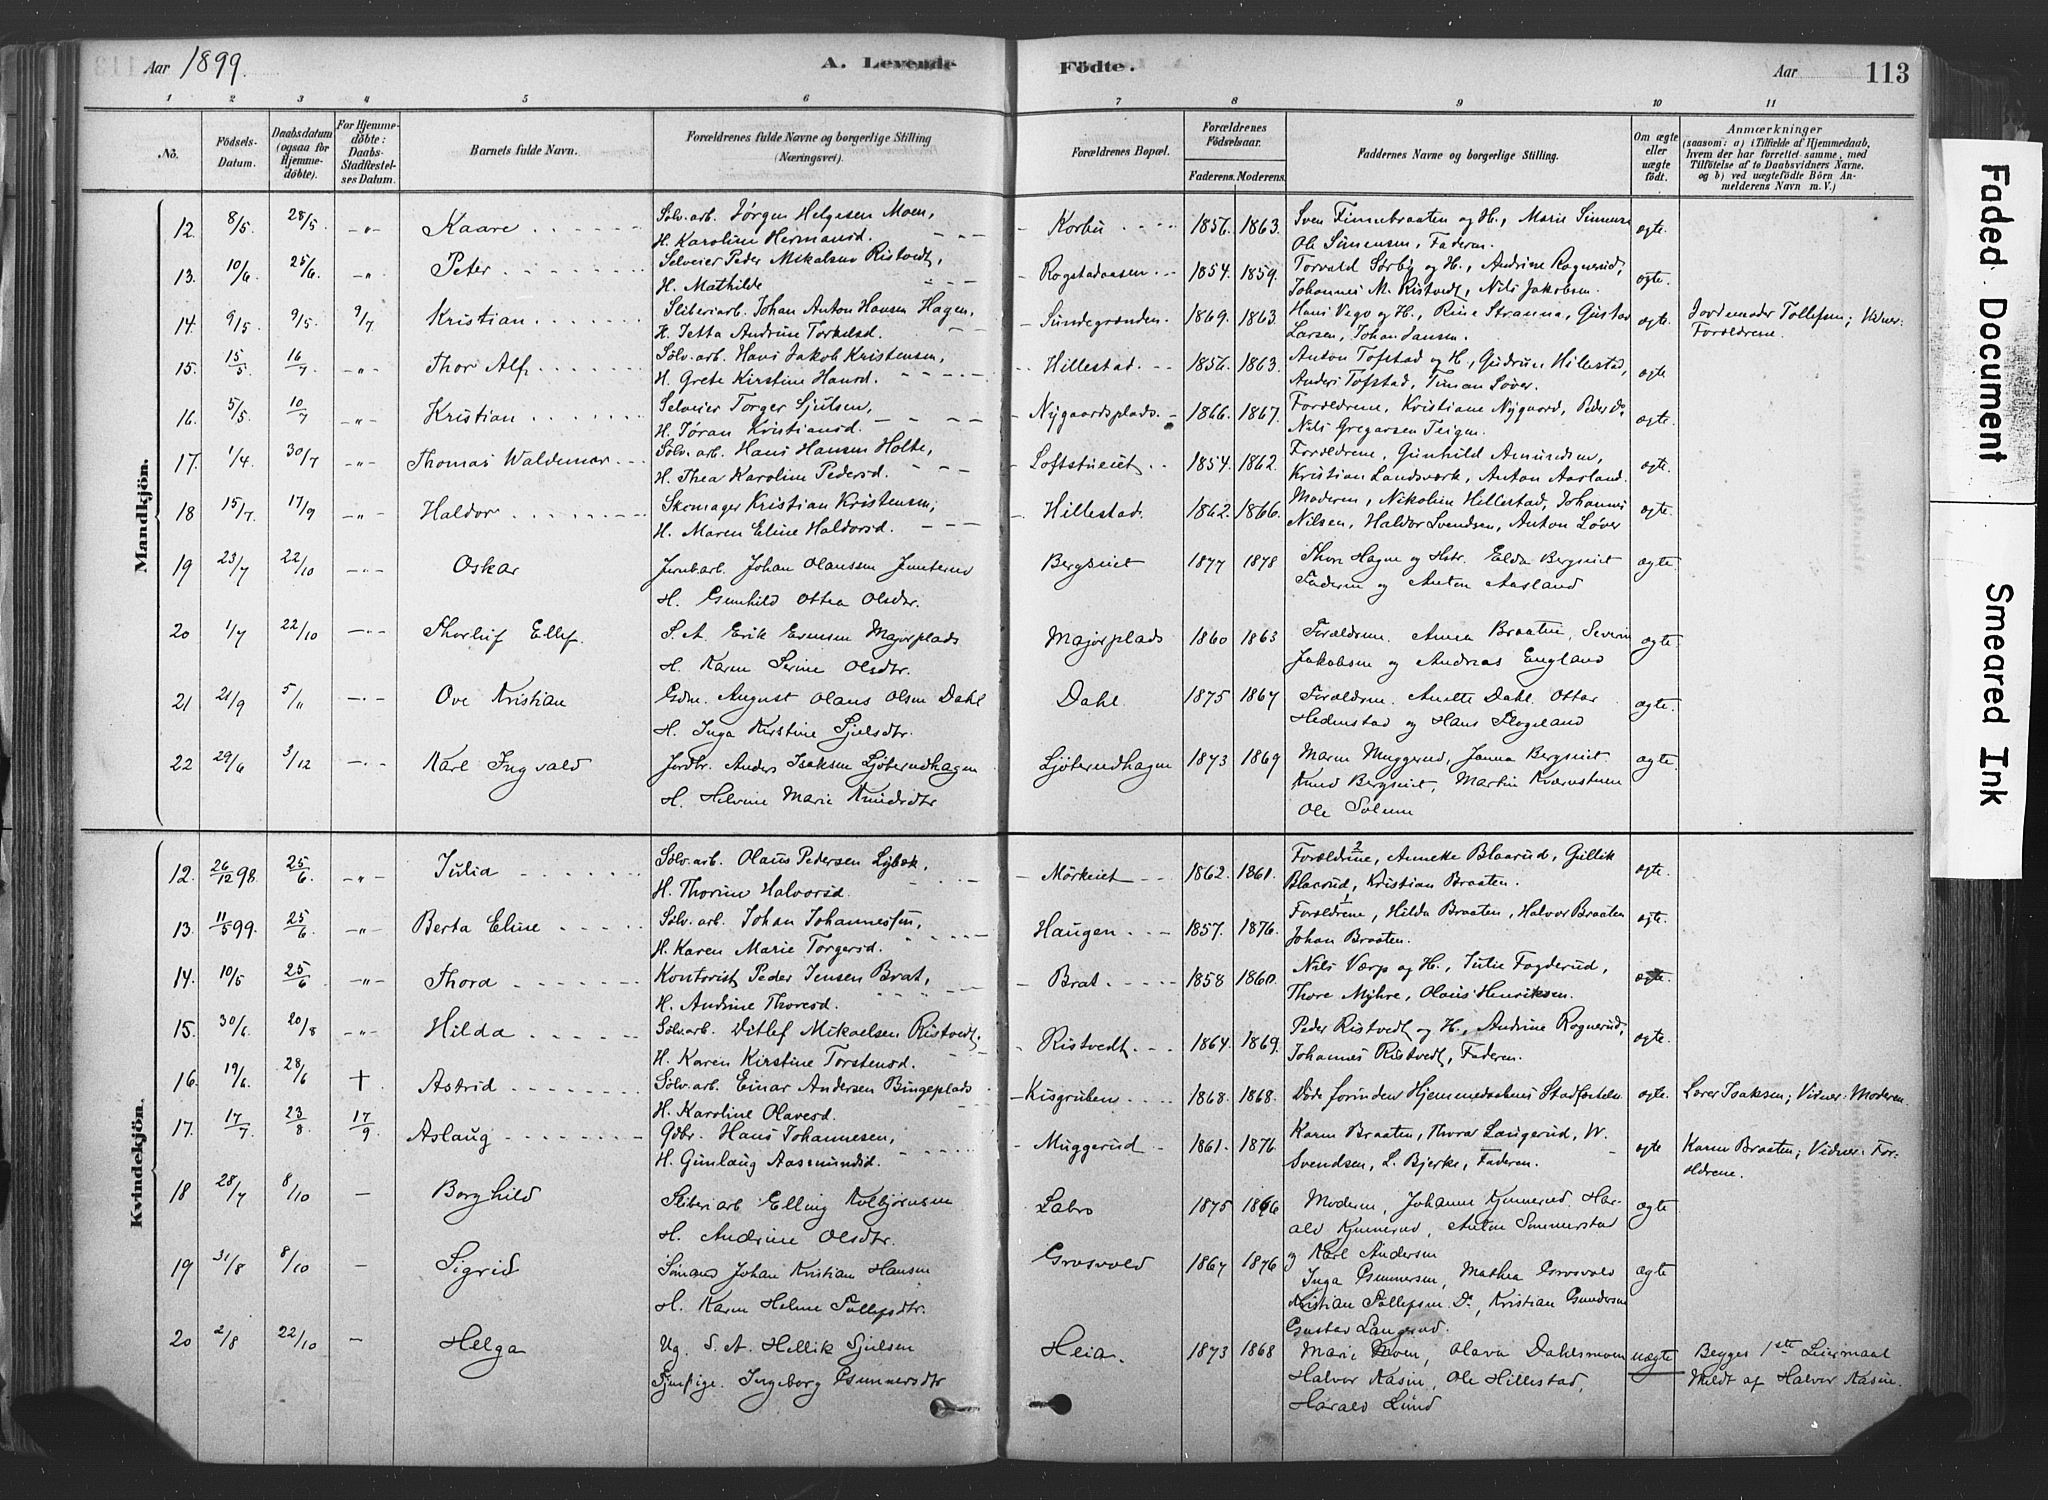 Aar 1899. A. Levende Födte. Aar 113
1 2 3 4 5 6 7 8 9 10 11
No. Födsels-Datum. Daabsdatum (ogsaa for Hjemmedöbte). For Hjemmedöbte: Daabs-Stadfæstelses Datum. Barnets fulde Navn. Forældrenes fulde Navne og borgerlige Stilling (Næringsvei). Forældrenes Bopæl. Forældrenes Födselsaar. Faderens. Moderens. Faddernes Navne og borgerlige Stilling. Om ægte eller uægte födt. Anmærkninger (saasom: a) i Tilfælde af Hjemmedaab, hvem der har forrettet samme, med Tilföielse af to Daabsvidners Navne, og b) ved uægtefödte Börn Anmelderens Navn m. V.)
Mandkjön.
12. 8/5. 28/5 -"- Kaare Sølv.arb. Jørgen Helgesen Moen, Korbu 1856. 1863. Sven Finnebraaten og H., Marie Simense ægte.
H. Karoline Hermansd. Ole Simensen, Faderen.
13. 10/6. 25/6. -"- Peter Selveier Peder Mikalsen Ristvedt, Rogstadaasen 1854. 1859. Torvald Sørby og H., Andrine Rognerud, ægte.
H. Mathilde Johannes M. Ristvedt, Nils Jakobsen.
14. 9/5. 9/5. 9/7 Kristian Sliberiarb. Johan Anton Hansen Hagen, Sundegrænden 1869. 1863. Hans Vego og H., Rine Stranna, Gustav ægte. Jordemoder Tollefsen; Vidner:
H. Jetta Andrine Torkelsd. Larsen, Johan Jansen. Forældrene.
15. 15/5 16/7 -"- Thor Alf Sølv.arb. Hans Jakob Kristensen, Hillestad 1856. 1863. Anton Tofstad og H., Gudrun Hillestad, ægte
H. Grete Kirstine Hansd. Anders Tofstad, Timan Løver.
16. 5/5 10/7 -"- Kristian Selveier Torger Sjulsen, Nygaardsplads 1866. 1867. Forældrene, Kristiane Nygaard, Peder Do, ægte.
H. Jøran Kristiansd. Nils Gregarsen Teigen.
17. 1/4. 30/7 -"- Thomas Waldemar Sølv.arb. Hans Hansen Holte, Loftstueiet 1854. 1862. Forældrene, Gunhild Amundsen, ægte.
H. Thea Karoline Pedersd. Kristian Landsværk, Anton Aasland.
18 15/7. 17/9 -"- Haldor Skomager Kristian Kristensen, Hillestad. 1862. 1866. Moderen, Nikoline Hillestad, Johannes ægte.
H. Maren Eline Haldorsd. Nilsen, Haldor Svendsen, Anton Løver
19 23/7 22/10 -"- Oskar Jernb.arb. Johan Olaussen Bergseiet 1877 1878 Thor Hagne og Hstr. Elda Bergseiet ægte.
H. Gunhild Ottea Olsdtr. Faderen og Anton Aasland
20 1/7 22/10 -"- Thorleif Ellef. S.A. Erik Evensen Majorplads Majorplads 1860 1863 Forældrene. Anna Braaten, Severin ægte.
H. Karen Serine Olsdtr. Jakobsen og Andreas England
21 21/9 5/11 -"- Ove Kristian Gdm. August Olaus Olsen Dahl Dahl 1875 1867 Forældrene. Anette Dahl. Ottar ægte.
H. Inga Kirstine Sjulsdtr. Hedenstad og Hans Skogeland
22 29/6 3/12 -"- Karl Ingvald Jordbr. Anders Isaksen Ljøterudhagen Ljøterudhagen 1873 1869 Maren Muggerud, Janna Bergseiet ægte.
H. Helvine Marie Knudsdtr Knud Bergseiet, Martin Kværnstuen
Ole Solum
Kvindekjön.
12. 26/12 98. 25/6. -"- Julia Sølv.arb. Olaus Pedersen Lybæk, Mørkeiet 1862. 1861. Forældrene, Anneke Blaarud, Gullik ægte.
H. Thorine Halvorsd. Blaarud, Kristian Braaten.
13. 11/5 99. 25/6. -"- Berta Eline Sølv.arb. Johan Johannessen, Haugen 1857. 1876. Forældrene, Hilda Braaten, Halvor Braaten ægte.
H. Karen Marie Torgersd. Johan Braaten.
14. 10/5 25/6. -"- Thora Kontorist Peder Jensen Brat, Brat 1858 1860. Nils Værp og H., Julie Fogderud, ægte.
H. Andrine Thoresd. Thore Myhre, Olaus Henriksen.
15. 30/6. 20/8 -"- Hilda Sølv.arb. Ditlef Mikaelsen Ristvedt, Ristvedt 1864. 1869. Peder Ristvedt og H., Andrine Rognerud, ægte.
H. Karen Kirstine Torstensd. Johannes Ristvedt, Faderen.
16. 19/6. 28/6 † Astrid Sølv.arb. Einar Andersen Bingeplads Kisgruben 1868. 1868. Døde forinden Hjemmedaabens Stadfæstelse ægte. Laver Isaksen; Vidner: Moderen.
H. Karoline Olavesd.
17. 17/7. 23/8 17/9 Aslaug Gdbr. Hans Johannesen, Muggerud 1861. 1876. Karen Braaten, Thora Langerud, W. ægte Karen Braaten; Vidner: For-
H. Gunlaug Aasmundsd. Svendsen, L. Bjerke, Faderen. ældrene.
18 28/7 8/10 - Borghild Sliberiarb Elling Kolbjørnsen Labro 1875 1866 Moderen, Johanne Kjennerud. Har- ægte
H. Andrine Olsdtr. ald Kjennerud, Anton Simmerstad
og Karl Andersen
19 31/8 8/10 - Sigrid Sømand Johan Kristian Hansen Grosvold 1867 1876 Inga Gunnersen, Mathea Grosvold ægte
H. Karen Helene Tollefsdtr. Kristian Tollefsen Do, Kristian Gundersen
Gustav Langerud.
20 2/8 22/10 - Helga Ug. S.A. Hellik Sjulsen Heia. 1873 1868 Marie Moen, Olava Dahlsmoen uægte Begges 1ste Leiermaal
Pige. Ingeborg Gunnersdtr Halvor Aasen, Ole Hillestad, Meldt af Halvor Aasen.
Harald Lund
Faded Document
Smeared Ink